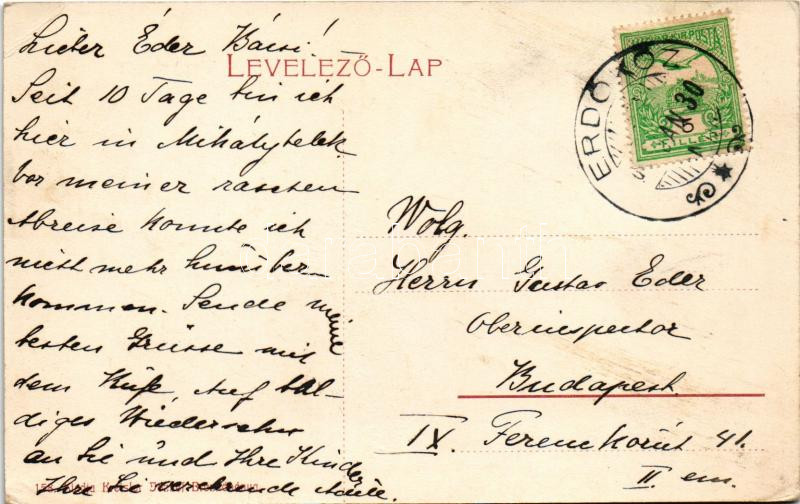 Lieber Éder Bácsi!
LEVELEZŐ-LAP
Seit 10 Tage bin ich
hier in Mihálytelek
vor meiner raschen
Abreise konnte ich
nicht mehr hinüber-
kommen. Sende meine
besten Grüsse mit
dem Kuße, Auf bal-
diges Wiedersehn
an Sie und Ihre Kinder
Ihre Sie
MAGYAR KIR. POSTA
FILLÉR
ERDŐKÖZ
JAN 30
Wolg.
Herrn Gustav Eder
Oberinspector
Budapest.
IX. Ferenc Körút 41.
II em.